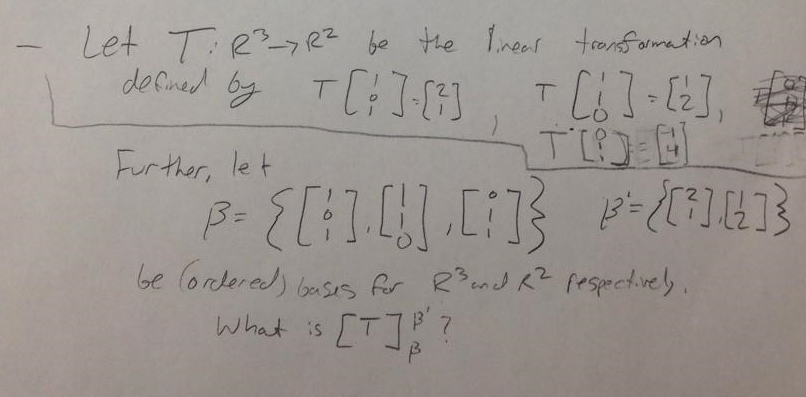 – Let T: R³→R² be the linear transformation
defined by T[1 0 1] = [2 1], T[1 1 0] = [1 2],
T[0 1 1] = [-1 4]
Further, let
β = {[1 0 1], [1 1 0], [0 1 1]} β' = {[2 1], [1 2]}
be (ordered) bases for R³ and R² respectively.
What is [T]_β^β' ?